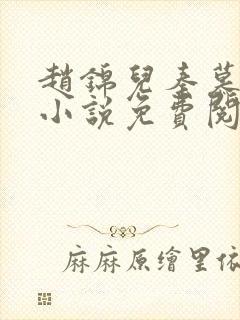 趙錦兒秦慕
小說免費閱
麻麻原繪里依